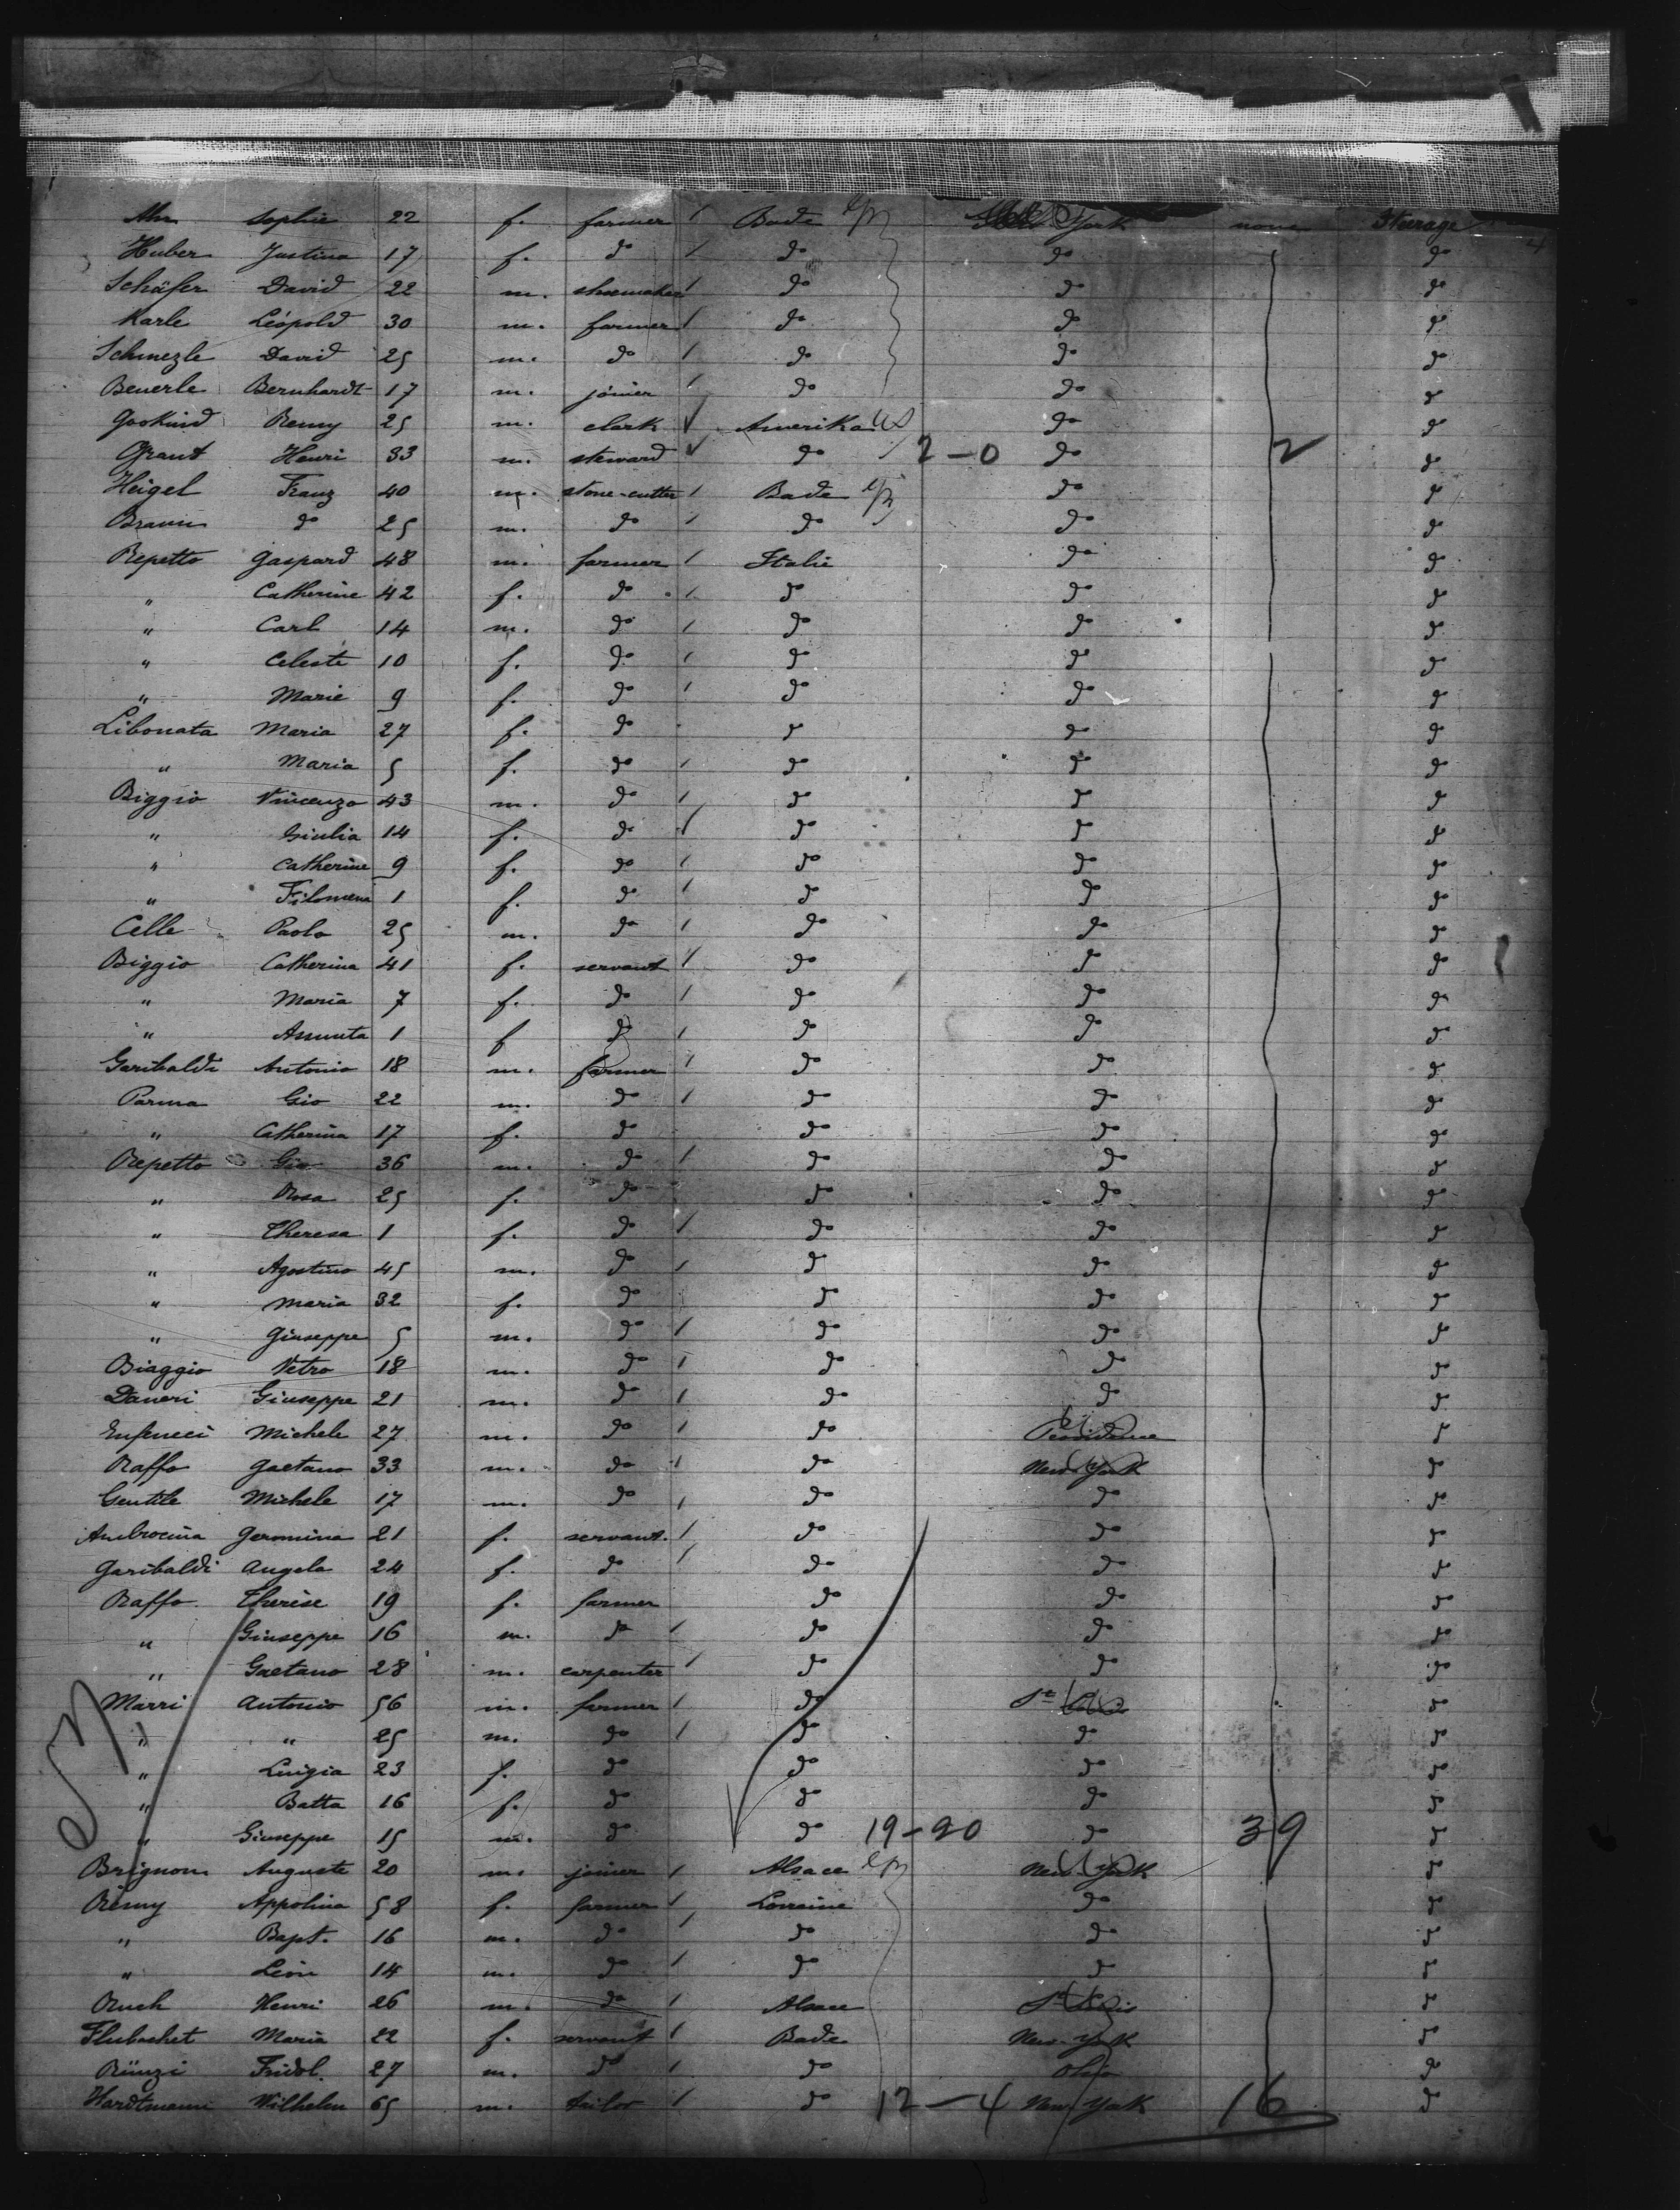 Ahr Sophie 22 f. farmer Bade York none Steerage
Huber Justina 17 f. do do do do
Schäfer David 22 m. shoemaker do do do
Karle Léopold 30 m. farmer do do do
Schmezle David 25 m. do do do do
Beuerle Bernhardt 17 m. joiner do do do
Gookind Remy 25 m. clark Amerika US do do
Grant Henri 33 m. steward do 2-0 do 2 do
Heigel Franz 40 m. stone-cutter Bade do do
Braun do 25 m. do do do do
Repetto Gaspard 48 m. farmer Italie do do
" Catherine 42 f. do do do do
" Carl 14 m. do do do do
" Celeste 10 f. do do do do
" Marie 9 f. do do do do
Libonata Maria 27 f. do do do do
" Maria 5 f. do do do do
Biggio Vincenzo 43 m. do do do do
" Giulia 14 f. do do do do
" Catherine 9 f. do do do do
" Filomena 1 f. do do do do
Celle Paolo 25 m. do do do do
Biggio Catherina 41 f. servant do do do
" Maria 7 f. do do do do
" Assunta 1 f do do do do
Garibaldi Antonio 18 m. farmer do do do
Parma Gio 22 m. do do do do
" Catherina 17 f. do do do do
Repetto Gio 36 m. do do do do
" Rosa 25 f. do do do do
" Theresa 1 f. do do do do
" Agostino 45 m. do do do do
" Maria 32 f. do do do do
" Giuseppe 5 m. do do do do
Biaggio Vetro 18 m. do do do do
Daneri Giuseppe 21 m. do do do do
Michele 27 m. do do Providence do
Raffo Gaetano 33 m. do do New-York do
Gentile Michele 17 m. do do do do
Ambrocina Geromina 21 f. servant. do do do
Garibaldi Angela 24 f. do do do do
Raffo Therèse 19 f. farmer do do do
" Giuseppe 16 m. do do do do
" Gaetano 28 m. carpenter do do do
Marri Antonio 56 m. farmer do St Louis do
" " 25 m. do do do do
" Luigia 23 f. do do do do
" Batta 16 f. do do do do
" Giuseppe 15 m. do do 19-20 do 39 do
Brignon Auguste 20 m. joiner Alsace New-York do
Rémy Appolina 58 f. farmer Lorraine do do
" Bapt. 16 m. do do do do
" Léon 14 m. do do do do
Ruch Henri 26 m. do Alsace St Louis do
Flubachet Maria 22 f. servant Bade New-York do
Rünzi Fridol. 27 m. do do Ohio do
Hardtmann Wilhelm 65 m. tailor do 12-4 New York 16 do